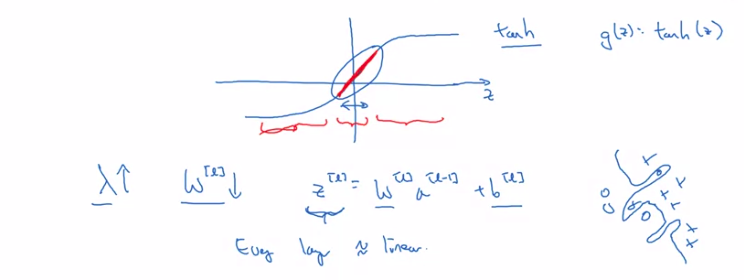 tanh
g(z): tanh(z)
z
λ↑ W^[l]↓ z^[l] = W^[l] a^[l-1] + b^[l]
Every layer ≈ linear.